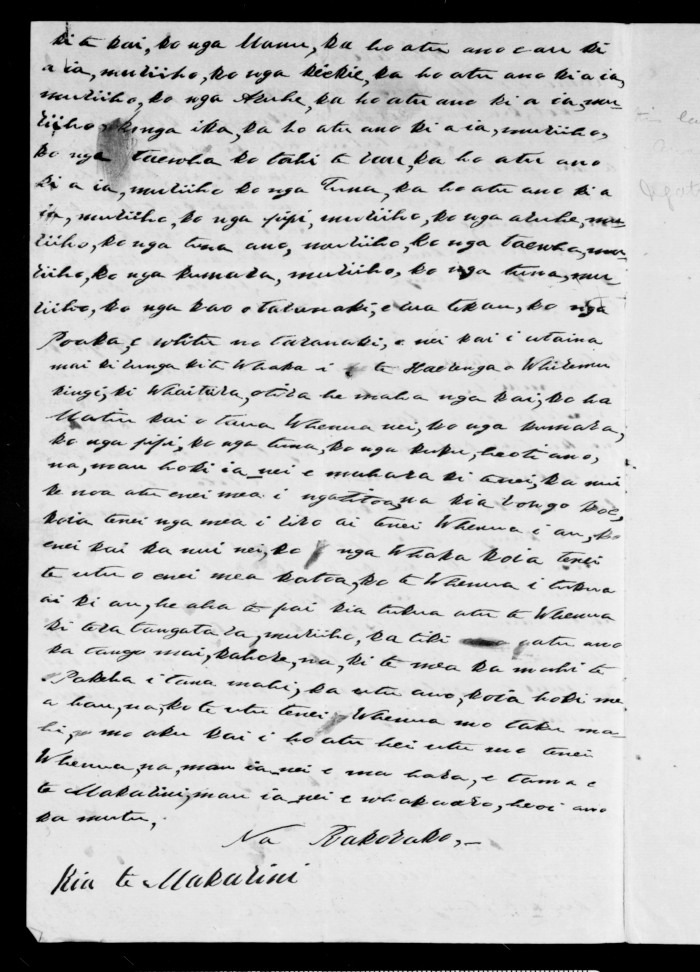 ki te kai, ko nga Manu, ka ho atu ano e au ki
a ia, muriiho, ko nga kiekie, ka ho atu ano ki a ia,
muriiho, ko nga Aruhe, ka ho atu ano ki a ia, mu-
riiho, ko nga ika, ka ho atu ano ki a ia, muriiho,
ko nga taewha ko tahi te rau, ka ho atu ano
ki a ia, muriiho ko nga Tuna, ka ho atu ano ki a
ia, muriiho, ko nga pipi, muriiho, ko nga aruhe, mu-
riiho, ko nga tuna ano, muriiho, ko nga taewha, mu-
riiho, ko nga kumara, muriiho, ko nga tuna, mu-
riiho, ko nga kao o taranaki, e wa tekau, ko nga
Poaka, e whitu no taranaki, e nei kai i utaina
mai ki runga ki te Whaka i te Haerenga o Whiremu
kingi, ki Whaitara, otira he maha nga kai, ko ha
Matu kai o tana Whenua nei, ko nga kumara,
ko nga pipi, ko nga tuna, ko nga kuku, heoti ano,
na, mau hoki ia nei e mahara ki tenei, ka nui
ke noa atu enei mea i nga toa, na kia rongo koe,
koia tenei nga mea i riro ai tenei Whenua i au, ko
enei kai ka nui nei, ko nga Whaka koia tenei
te utu o enei mea katoa, ko te Whenua i tukua
ai ki au, he aha te pai kia tukua atu te Whenua
ki tera tangata ra, muriiho, ka tiki atu ano
ka tango mai, kahore, na, ki te mea ka mahi te
Pakeha i tana mahi, ka utu ano, koia hoki me
a hau, na, ko te utu tenei Whenua mo taku ma-
hi, mo aku kai i ho atu hei utu mo tenei
Whenua, na, mau ia nei e ma hara, e tama e
te Makarini, mau ia nei e whakaaro, heoi ano
ka mutu,
Na Rakorako,
Kia te Makarini